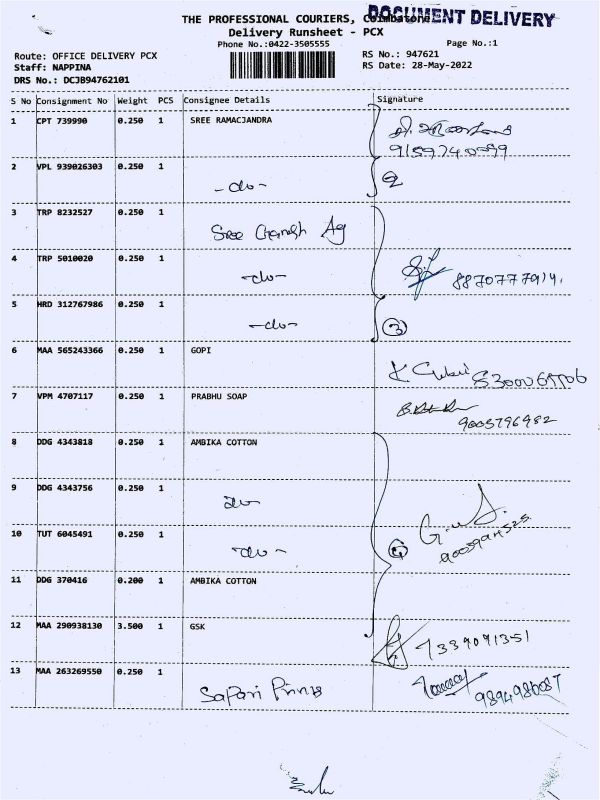 DOCUMENT DELIVERY
THE PROFESSIONAL COURIERS, Coimbatore
Delivery Runsheet - PCX
Phone No.:0422-3505555 Page No.:1
Route: OFFICE DELIVERY PCX RS No.: 947621
Staff: NAPPINA RS Date: 28-May-2022
DRS No.: DCJB94762101
S No Consignment No Weight PCS Consignee Details Signature
1 CPT 739990 0.250 1 SREE RAMACJANDRA
2 VPL 939026303 0.250 1 -do- 2
3 TRP 8232527 0.250 1 Sree Ganesh Ag
4 TRP 5010020 0.250 1 -do-
5 HRD 312767986 0.250 1 -do- 3
6 MAA 565243366 0.250 1 GOPI
7 VPM 4707117 0.250 1 PRABHU SOAP 9005796982
8 DDG 4343818 0.250 1 AMBIKA COTTON
9 DDG 4343756 0.250 1 do
10 TUT 6045491 0.250 1 -do- 4
11 DDG 370416 0.200 1 AMBIKA COTTON
12 MAA 290938130 3.500 1 GSK 7339091351
13 MAA 263269550 0.250 1 Safari Prints